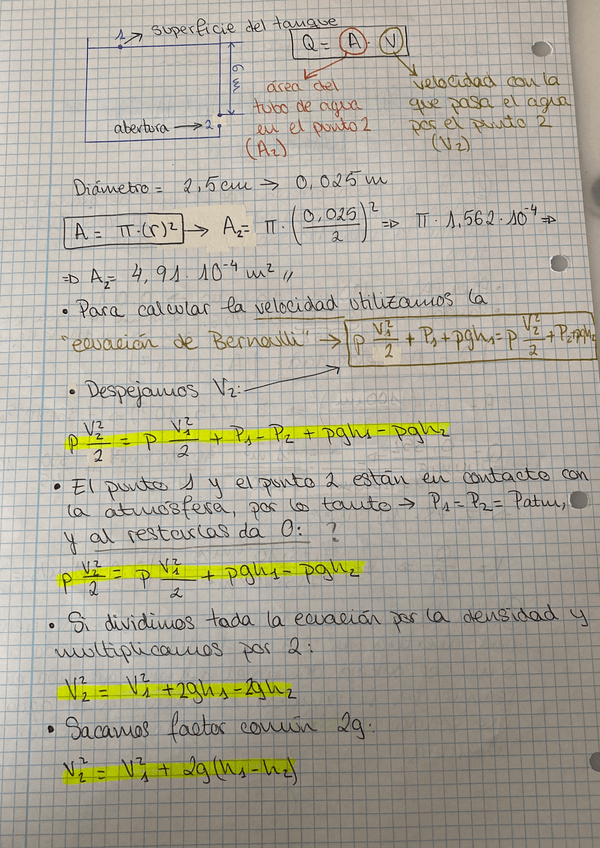 1 → superficie del tanque
Q = A · V
6m
abertura → 2
área del
tubo de agua
en el punto 2
(A₂)
velocidad con la
que pasa el agua
por el punto 2
(V₂)
Diámetro = 2,5cm → 0,025m
A = π·(r)² → A₂= π·(0,025/2)² => π·1,562·10⁻⁴ =>
=> A₂= 4,91·10⁻⁴ m² //
• Para calcular la velocidad utilizamos la
"ecuación de Bernoulli" → p V₁²/2 + P₁ + pgh₁ = p V₂²/2 + P₂ + pgh₂
• Despejamos V₂:
p V₂²/2 = p V₁²/2 + P₁ - P₂ + pgh₁ - pgh₂
• El punto 1 y el punto 2 están en contacto con
la atmósfera, por lo tanto → P₁ = P₂ = Patm,
y al restarlas da 0: ?
p V₂²/2 = p V₁²/2 + pgh₁ - pgh₂
• Si dividimos toda la ecuación por la densidad y
multiplicamos por 2:
V₂² = V₁² + 2gh₁ - 2gh₂
• Sacamos factor común 2g:
V₂² = V₁² + 2g(h₁-h₂)